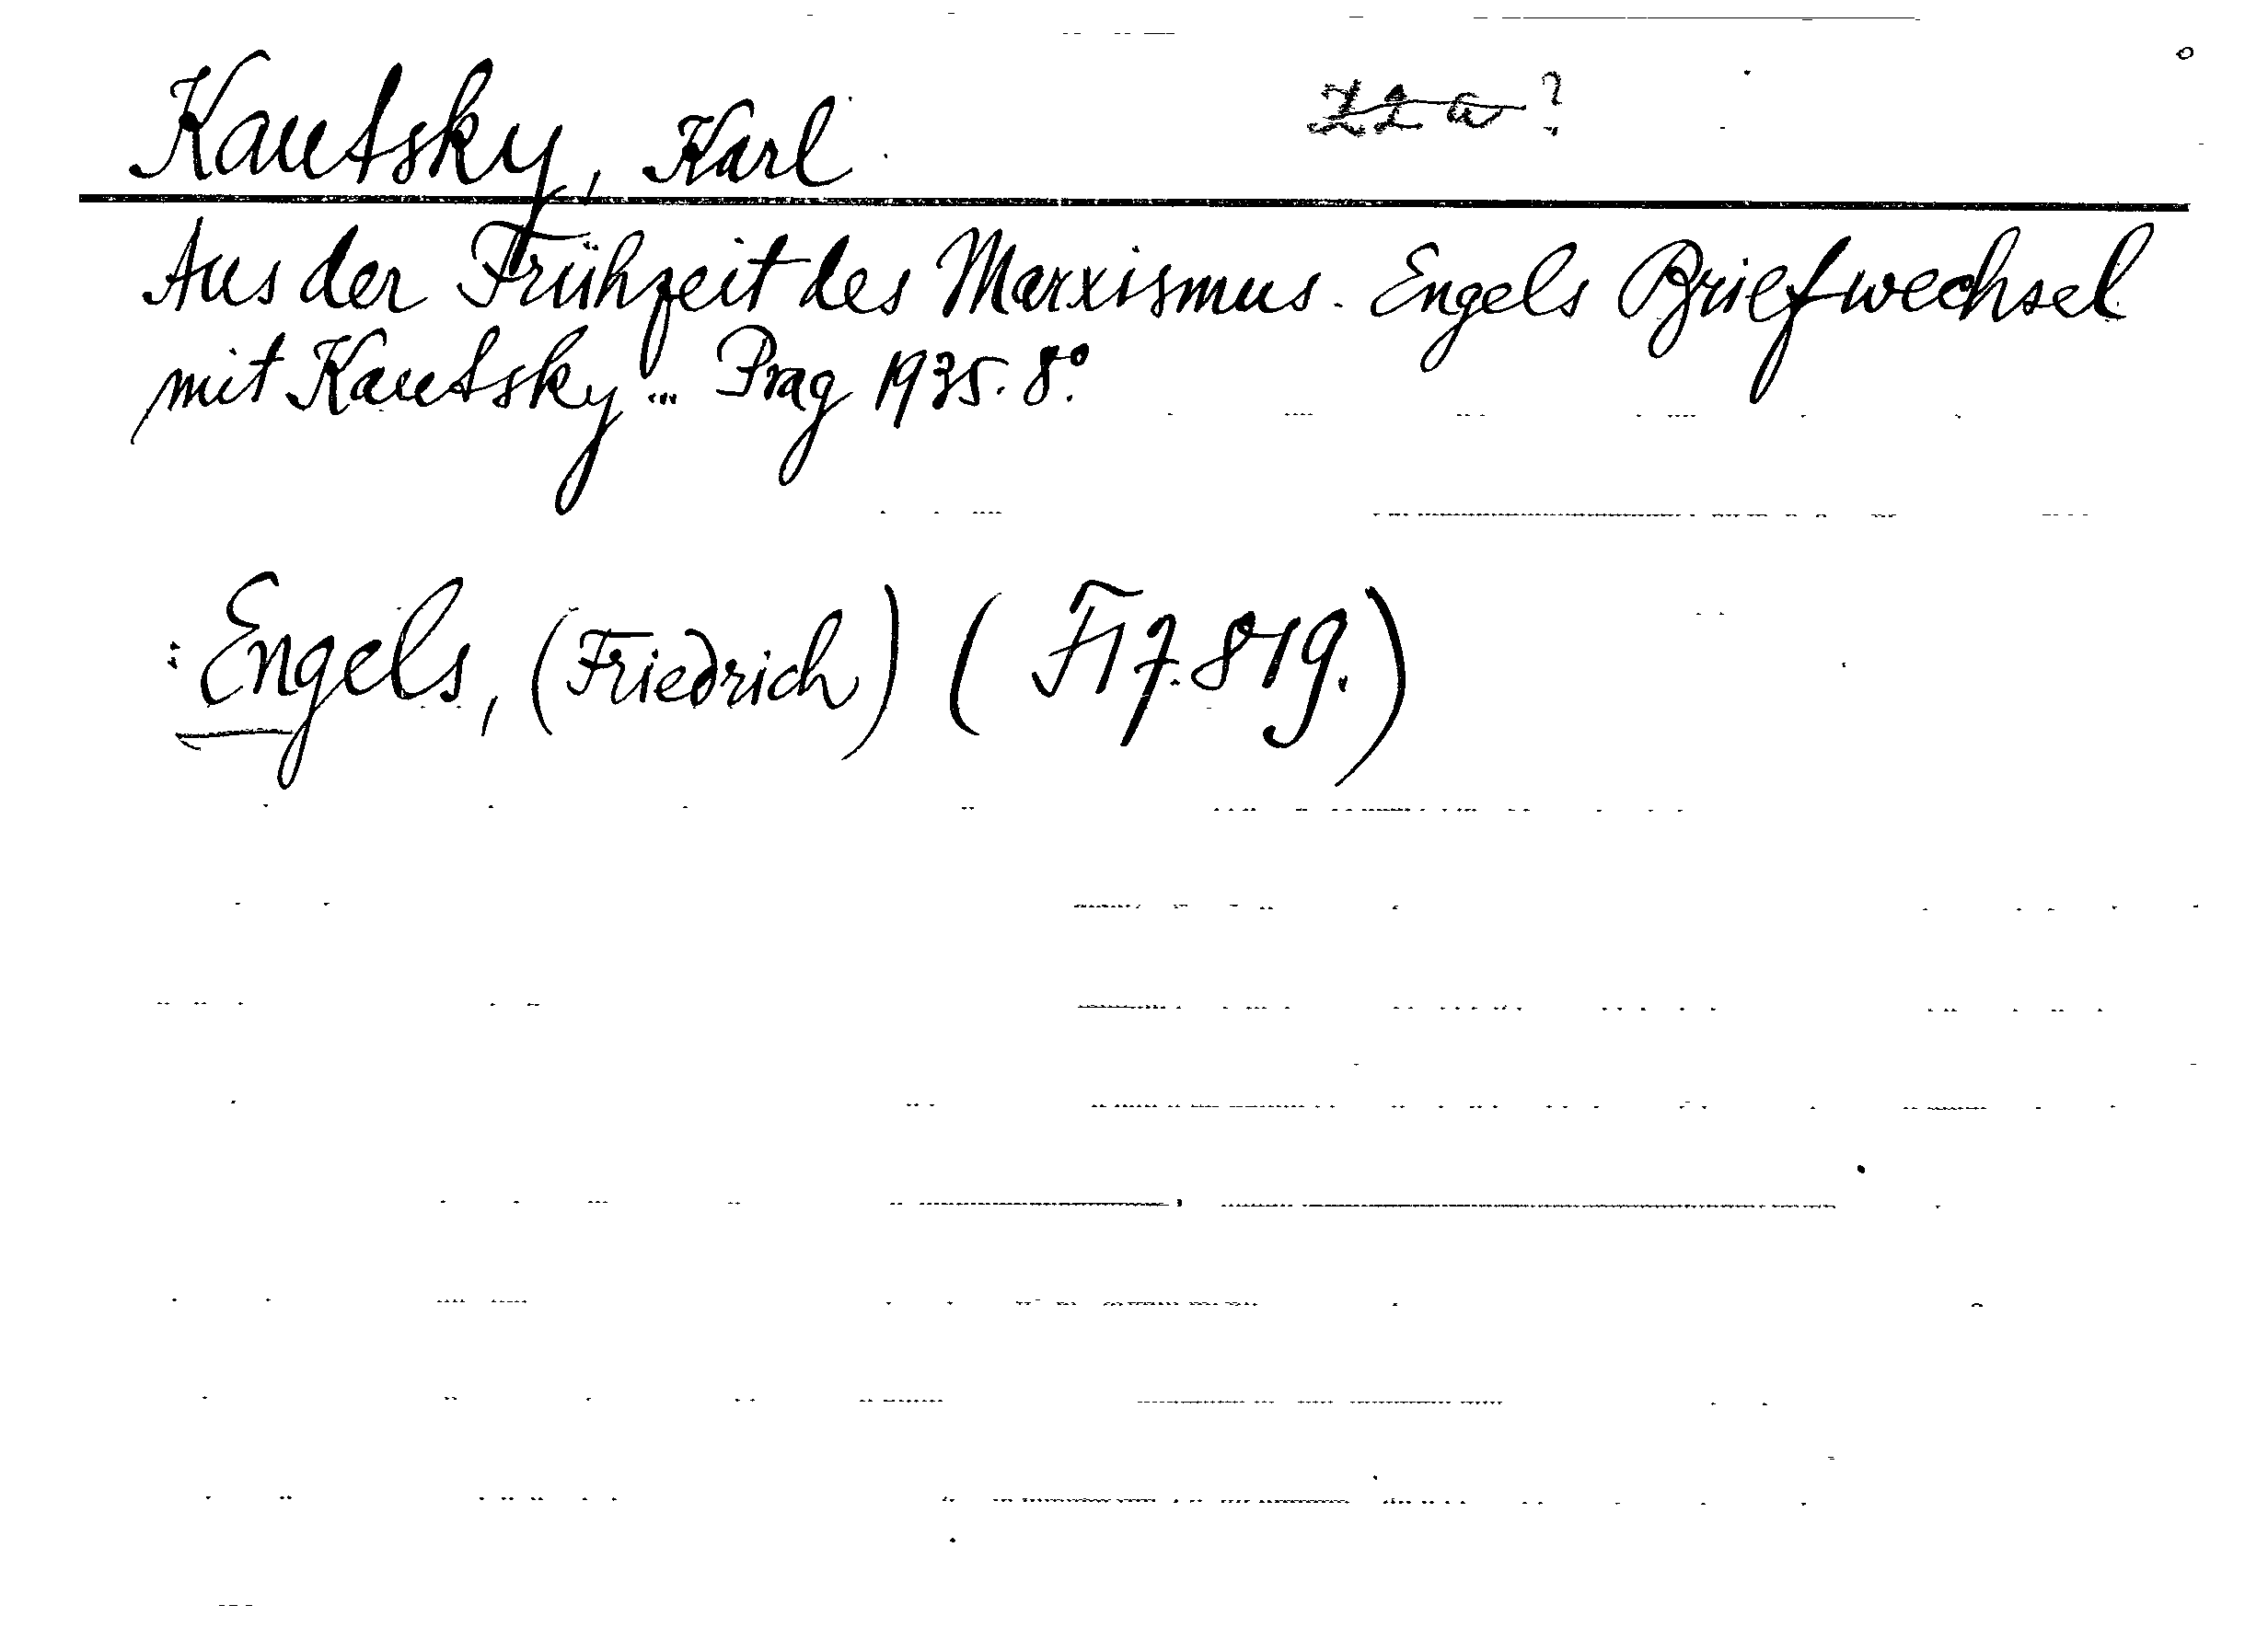 Kautsky, Karl
Aus der Frühzeit des Marxismus. Engels Briefwechsel
mit Kautsky ... Prag 1935. 8°.
: Engels, (Friedrich) (F 17.819.)